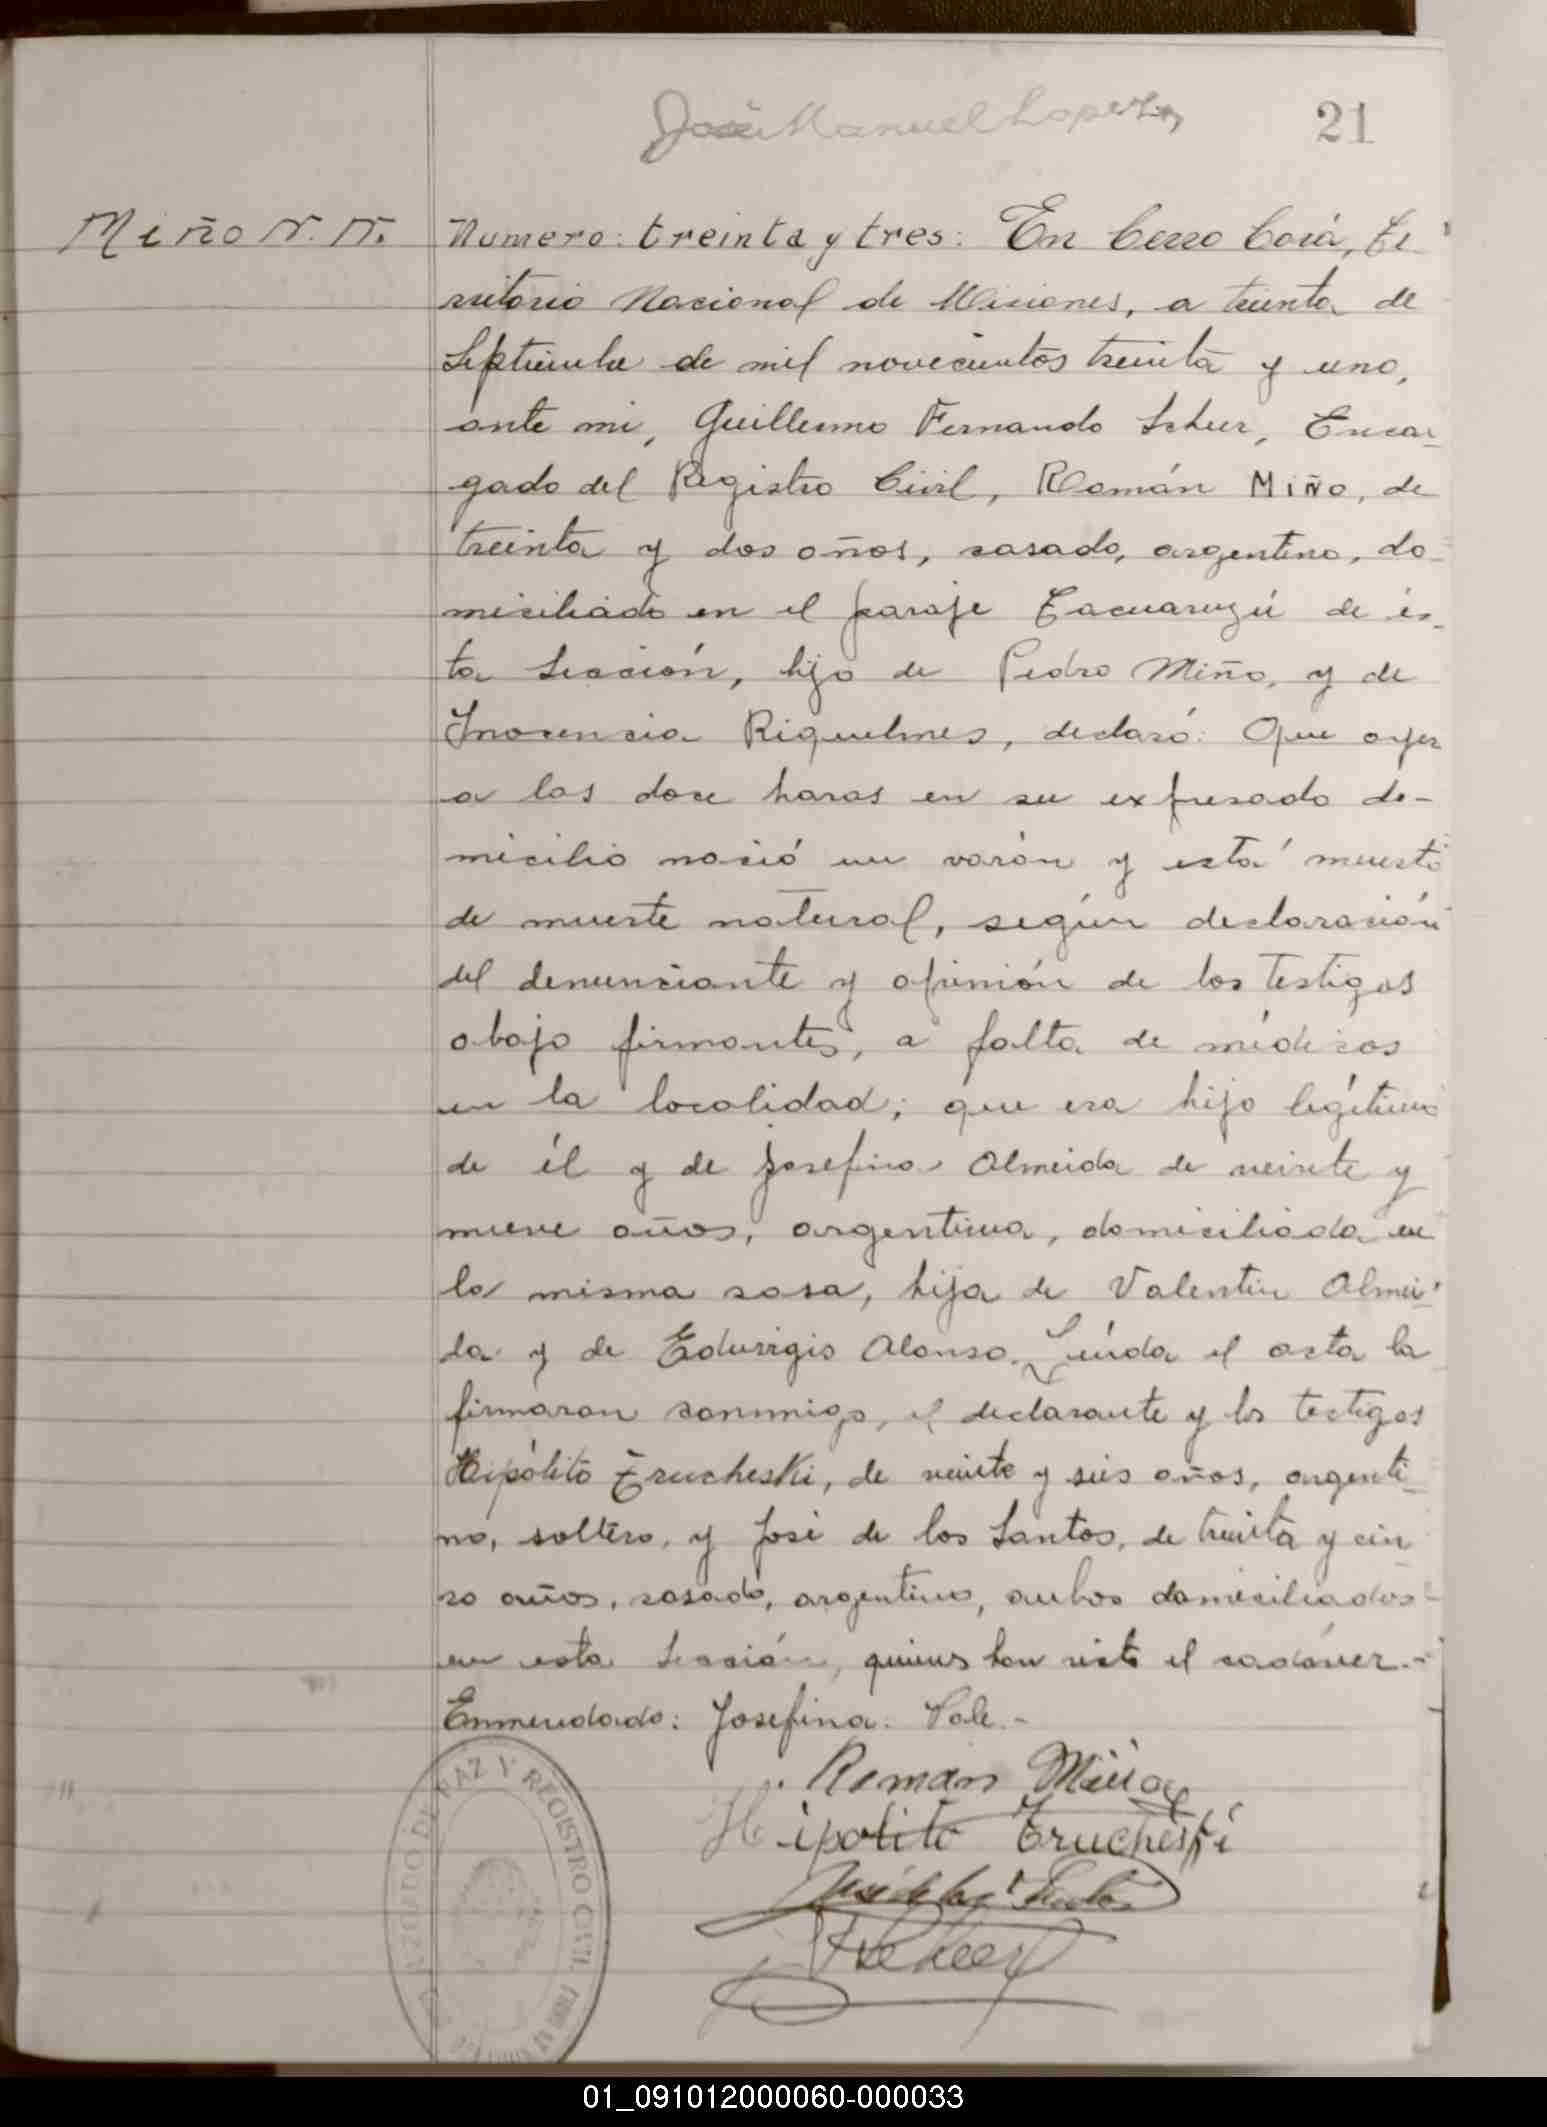 José Manuel Lopez
21
Miño N. N.
Numero: treinta y tres: En Cerro Corá, Te-
rritorio Nacional de Misiones, a treinta de
Septiembre de mil novecientos treinta y uno,
ante mi, Guillermo Fernando Scheer, Encar-
gado del Registro Civil, Román Miño, de
treinta y dos años, casado, argentino, do-
miciliado en el paraje Tacuaruzú de es-
ta Sección, hijo de Pedro Miño, y de
Inocencia Riquelmes, declaró: Que ayer
a las doce horas en su expresado do-
micilio nació un varón y está muerto
de muerte natural, según declaración
del denunciante y opinión de los testigos
abajo firmantes, a falta de médicos
en la localidad; que era hijo legítimo
de él y de Josefina Almeida de veinte y
nueve años, argentina, domiciliada en
la misma casa, hija de Valentin Almei-
da y de Eduvigis Alonso. Leída el acta la
firmaron conmigo, el declarante y los testigos
Hipólito Trucheski, de veinte y seis años, argenti-
no, soltero, y José de los Santos, de treinta y cin
co años, casado, argentino, ambos domiciliados
en esta Sección, quienes han visto el cadáver.-
Enmendado: Josefina: Vale.-
Roman Miño
Hipolito Trucheski
José de los Santos
Scheer
JUZGADO DE PAZ Y REGISTRO CIVIL
01_091012000060-000033